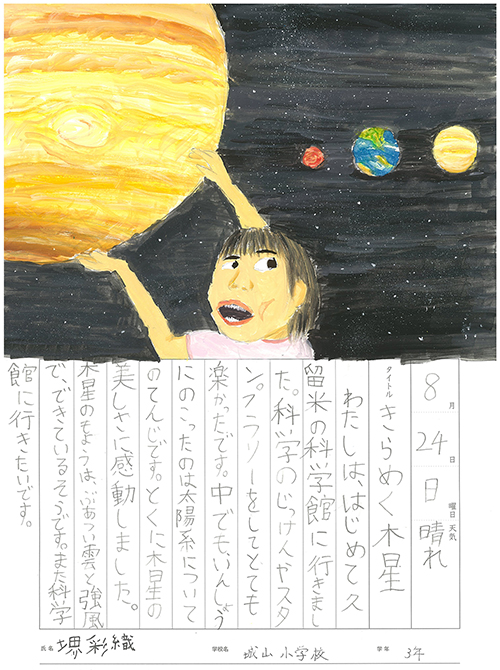 8月24日日曜日 天気 晴れ
タイトル きらめく木星
わたしは、はじめて久
留米の科学館に行きまし
た。科学のじっけんやスタ
ンプラリーをしてとても
楽かったです。中でも、いんしょう
にのこったのは太陽系について
のてんじです。とくに木星の
美しさに感動しました。
木星のもようは、ぶあつい雲と強風
で、できているそうです。また科学
館に行きたいです。
氏名 堺彩織 学校名 城山小学校 学年 3年